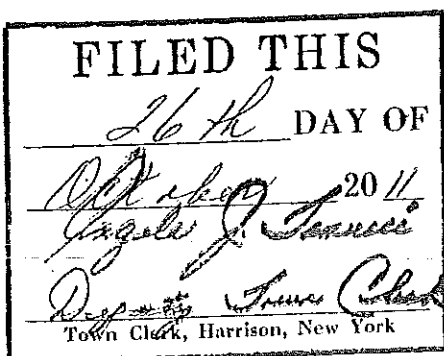 FILED THIS
26th DAY OF
October 2011
Angela J.
Deputy Town Clerk
Town Clerk, Harrison, New York